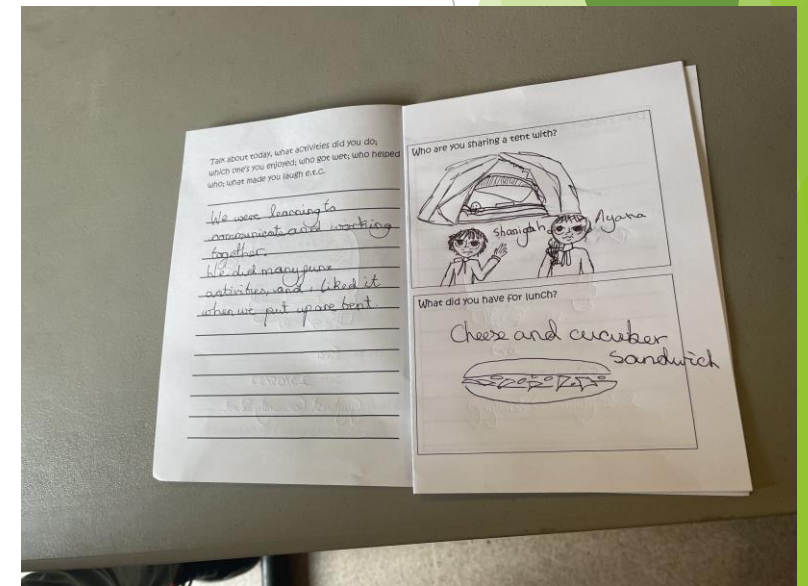 Talk about today, what activities did you do;
which one's you enjoyed; who got wet; who helped
who; what made you laugh e.t.c.
We were learning to
communicate and working
together.
We did many func
activities, and i liked it
when we put up are tent.
Who are you sharing a tent with?
Shanigah Ayana
What did you have for lunch?
Cheese and cucuber
Sandwich